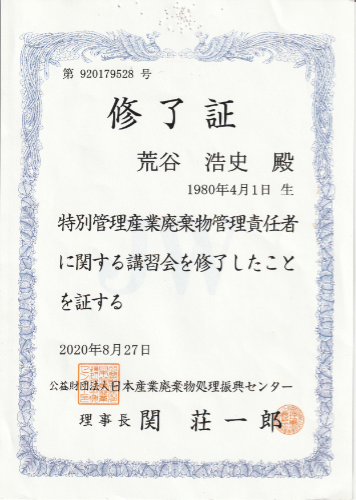 第 920179528 号
修了証
荒谷 浩史 殿
1980年4月1日 生
特別管理産業廃棄物管理責任者
に関する講習会を修了したこと
を証する
2020年8月27日
公益財団法人日本産業廃棄物処理振興センター
理事長 関 荘一郎
JW